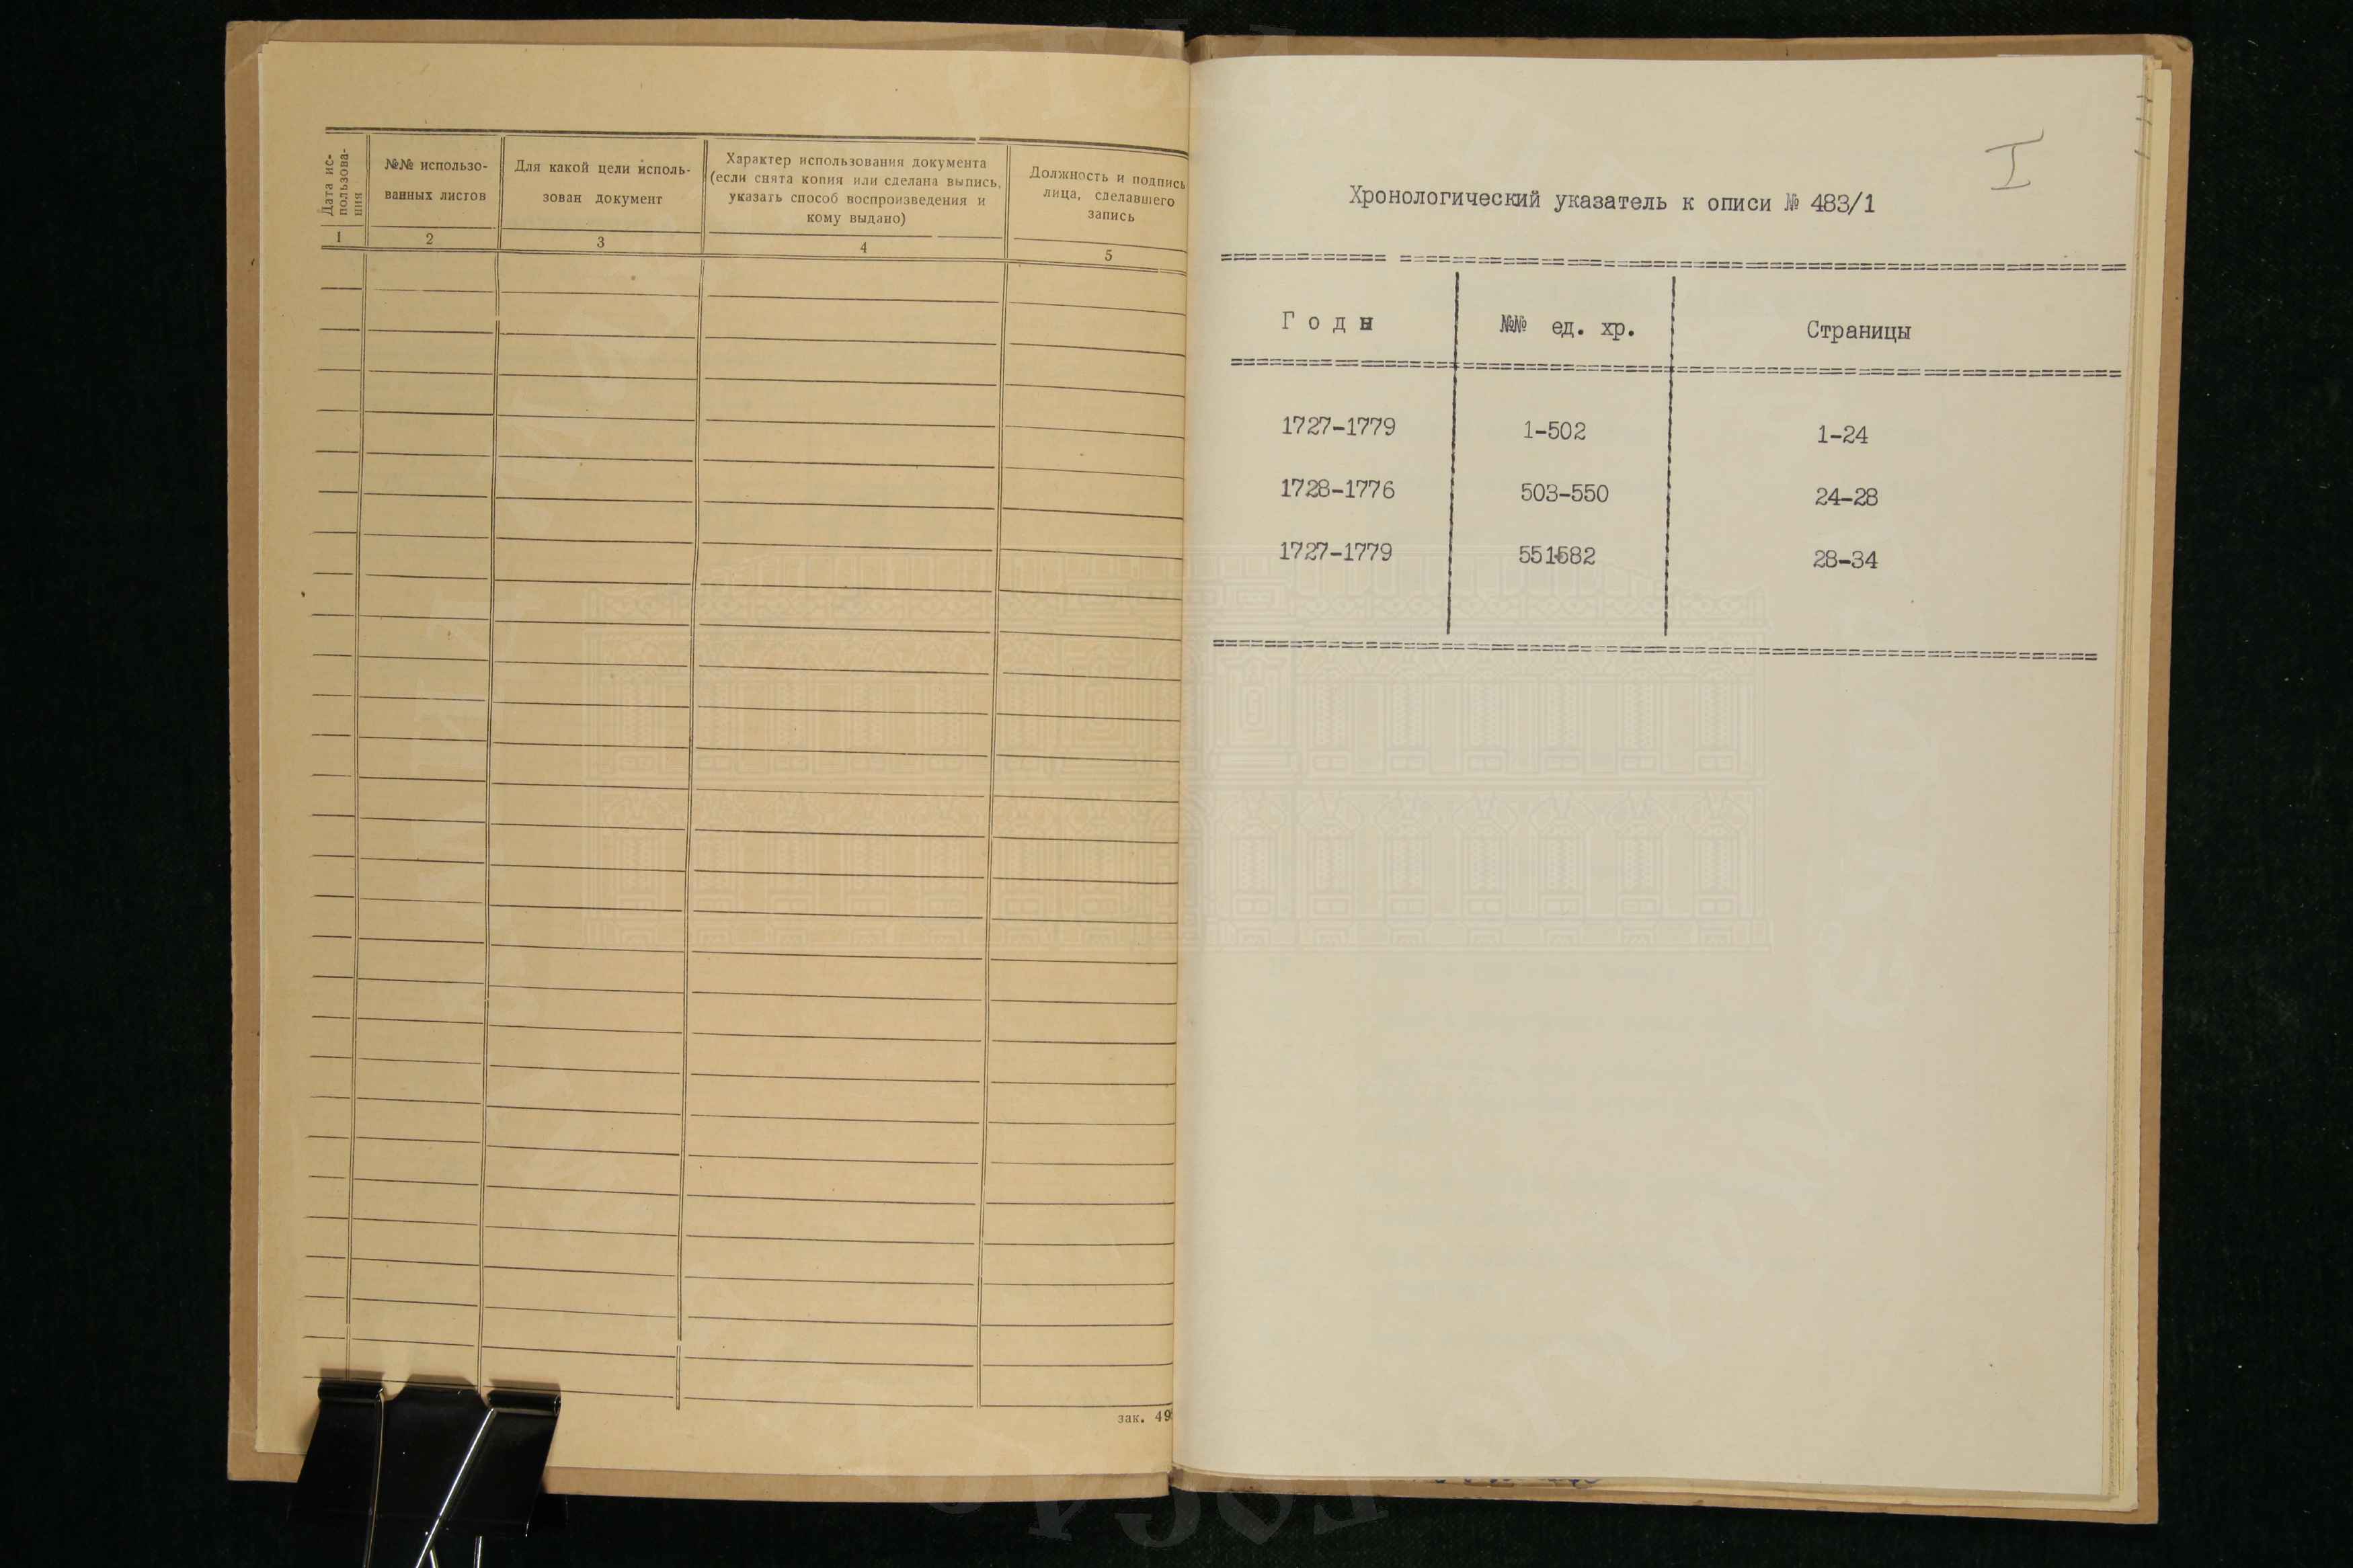 Дата ис-
пользова-
ния
№№ использо-
ванных листов
Для какой цели исполь-
зован документ
Характер использования документа
(если снята копия или сделана выпись,
указать способ воспроизведения и
кому выдано)
Должность и подпись
лица, сделавшего
запись
1 2 3 4 5
зак. 49
I
Хронологический указатель к описи № 483/1
Годы №№ ед. хр. Страницы
1727-1779 1-502 1-24
1728-1776 503-550 24-28
1727-1779 551-682 28-34